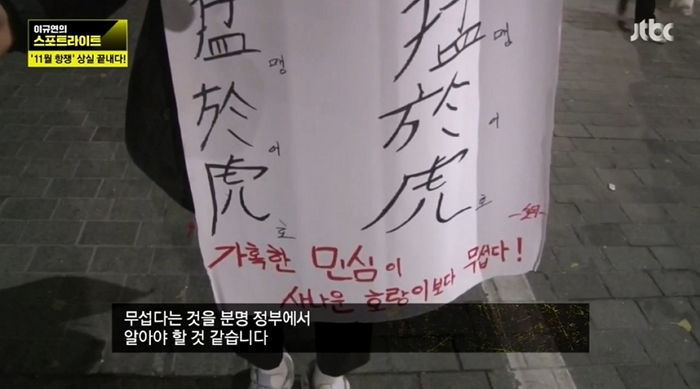 이규연의
스포트라이트
'11월 항쟁' 상실 끝내다!
jtbc
猛 맹 猛 맹
於 어 於 어
虎 호 虎 호
가혹한 민심이 무섭다!
사나운 호랑이보다
무섭다는 것을 분명 정부에서
알아야 할 것 같습니다